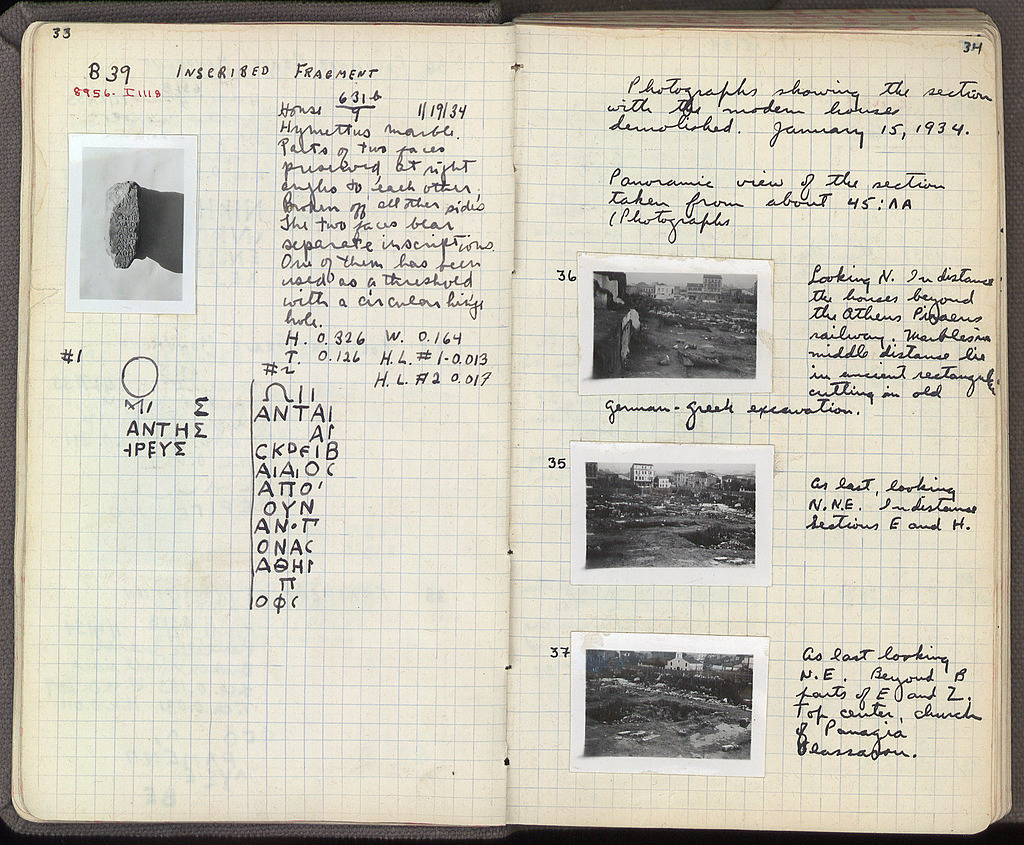 33
B 39 INSCRIBED FRAGMENT
8956. I 1118
House 631b/9 1/19/34
Hymettus marble.
Parts of two faces
preserved, at right
angles to each other,
Broken off all other sides
The two faces bear
separate inscriptions.
One of them has been
used as a threshold
with a circular hinge
hole.
H. 0.326 W. 0.164
T. 0.126 H.L. #1-0.013
H.L. #2 0.017
#1
Σ
ΑΝΤΗΣ
ΡΕΥΣ
#2
Ω
ΑΝΤΑΙ
ΑΙ
ϹΚΡΕΙΒ
ΑΙΛΙΟϹ
ΑΠΟ
ΟΥΝ
ΑΝ·Γ
ΟΝΑϹ
ΑΘΗΙ
Π
ΟΦϹ
34
Photographs showing the section
with the modern houses
demolished. January 15, 1934.
Panoramic view of the section
taken from about 45:ΛΑ
(Photographs
36
Looking N. In distance
the houses beyond
the Athens Piraeus
railway. Marbles in
middle distance lie
in ancient rectangular
cutting in old
German-Greek excavation.
35
As last, looking
N.N.E. In distance
Sections E and H.
37
As last looking
N.E. Beyond B
parts of E and Z.
Top center, church
of Panagia